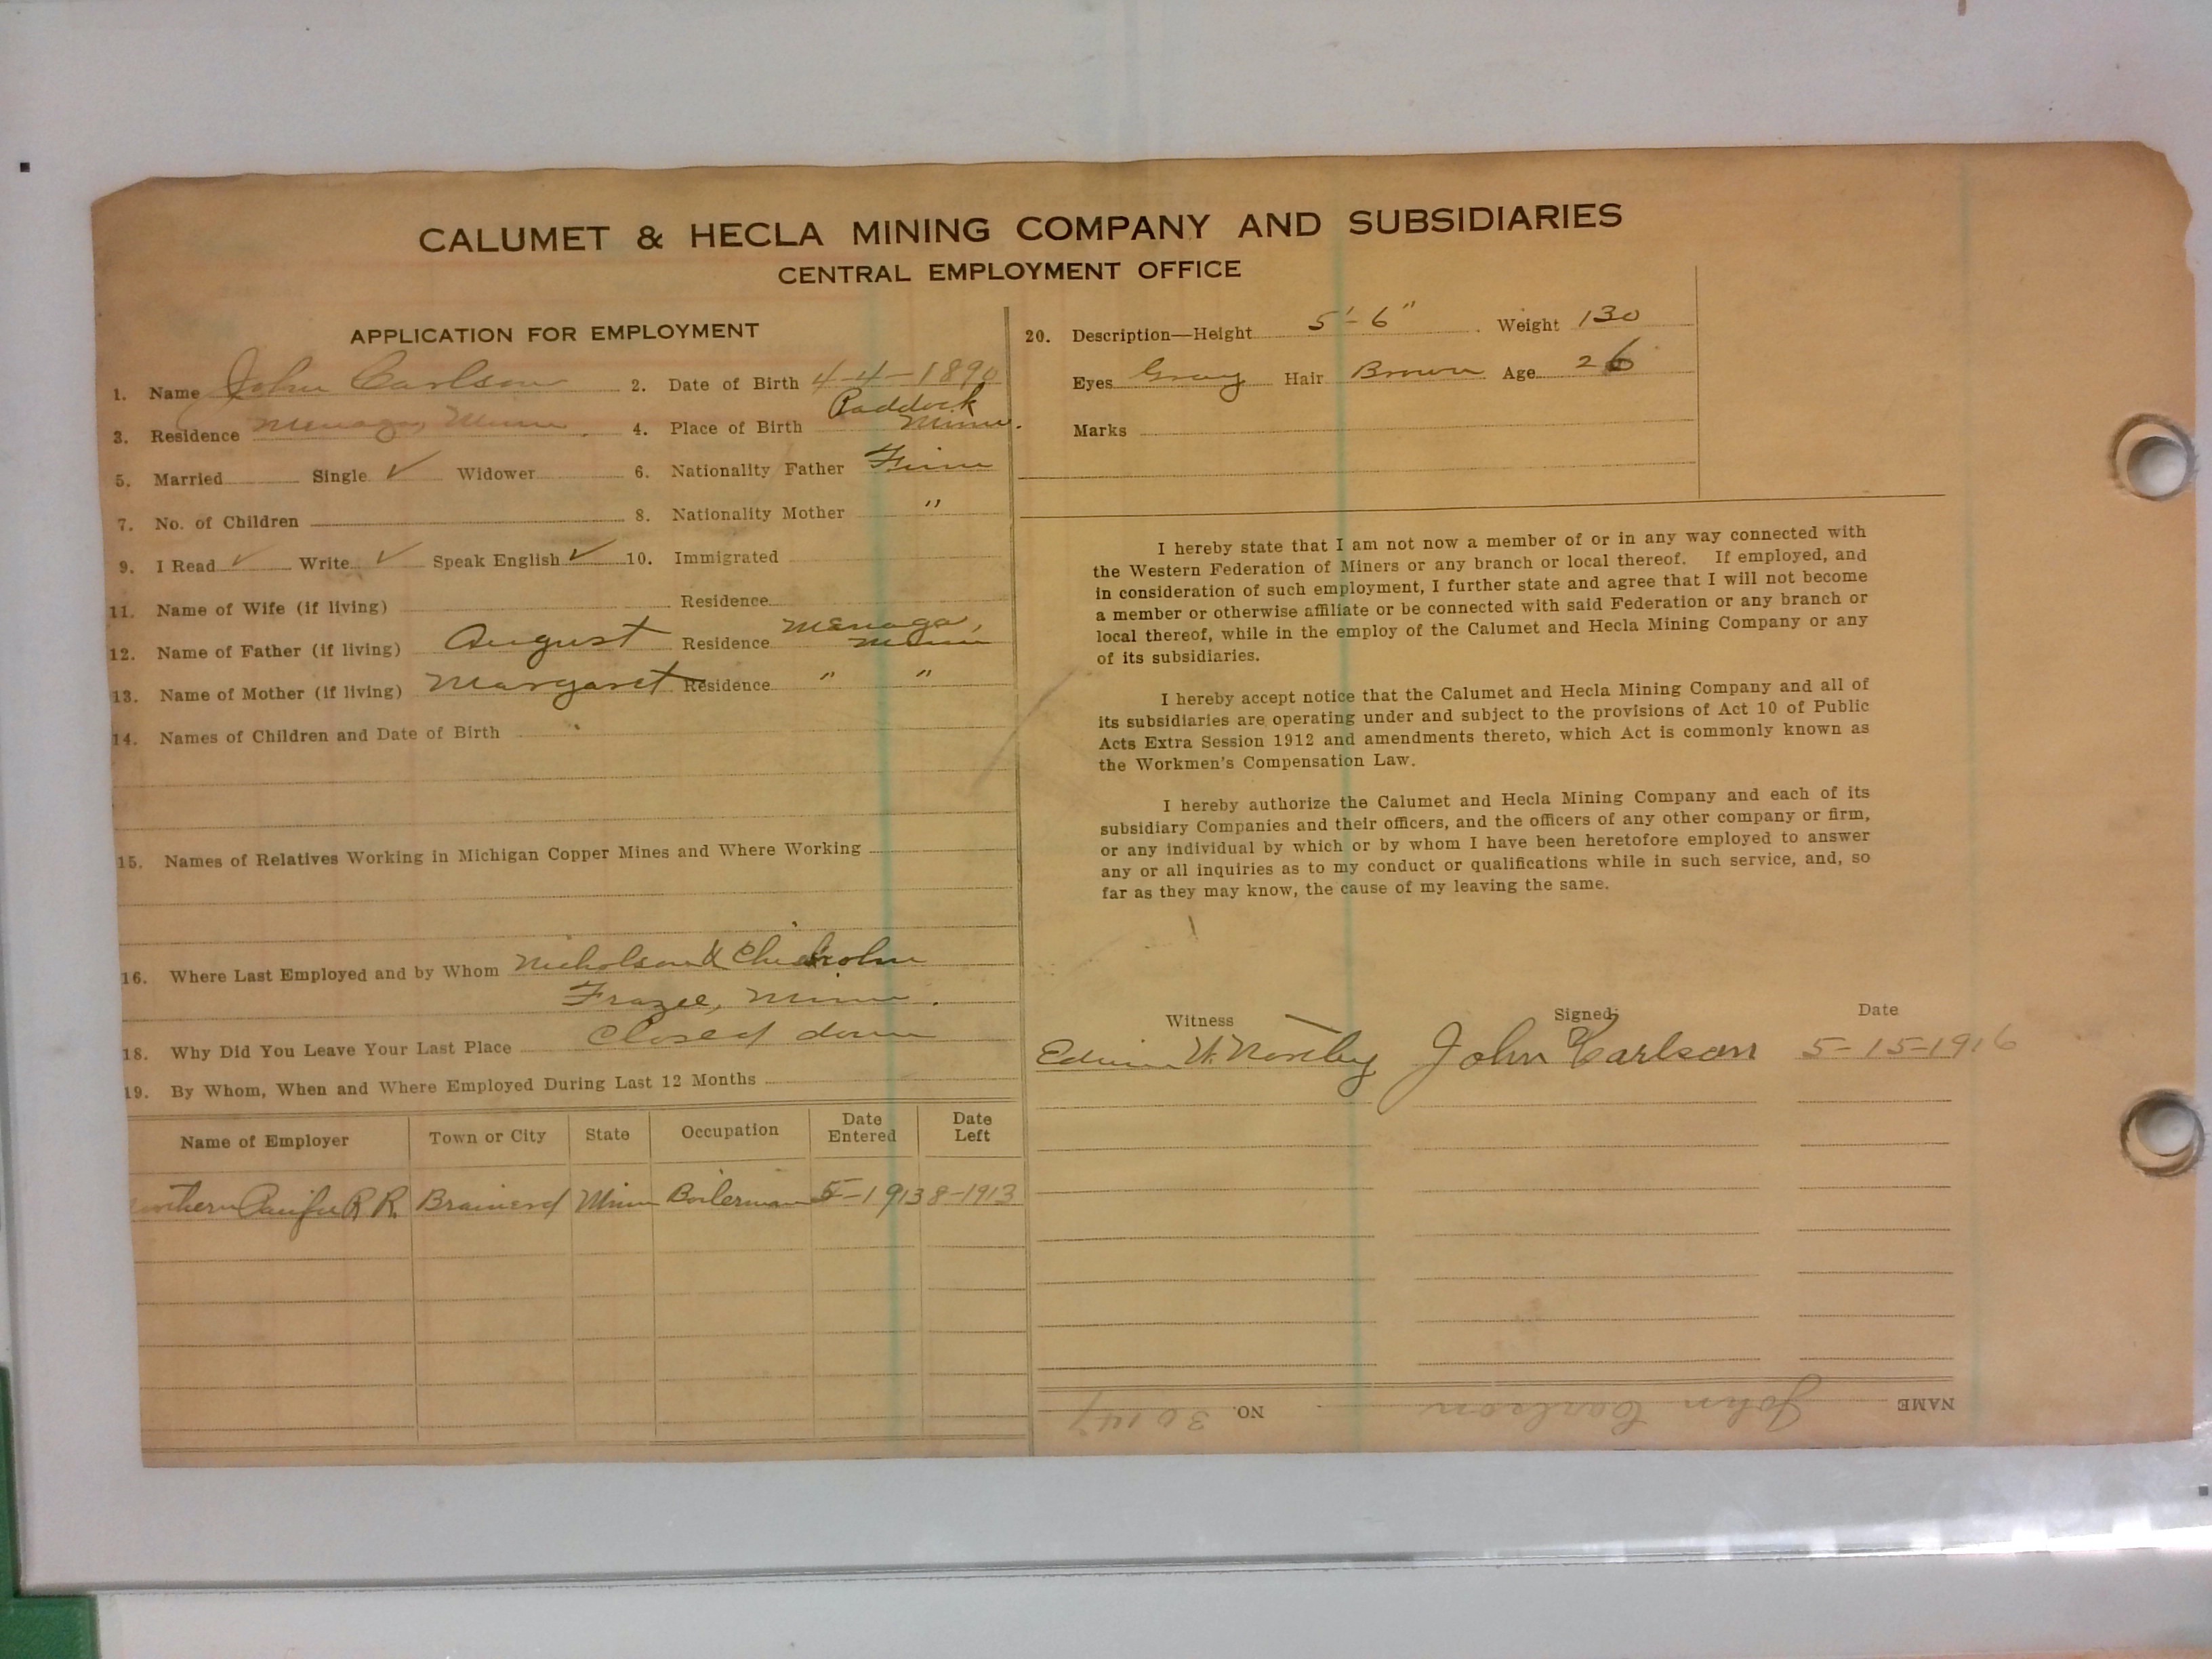 CALUMET & HECLA MINING COMPANY AND SUBSIDIARIES
CENTRAL EMPLOYMENT OFFICE
APPLICATION FOR EMPLOYMENT
1. Name John Carlson 2. Date of Birth 4-4-1890
3. Residence Menaga, Minn 4. Place of Birth Paddock Minn.
5. Married Single ✓ Widower 6. Nationality Father Finn
7. No. of Children 8. Nationality Mother "
9. I Read ✓ Write ✓ Speak English ✓ 10. Immigrated
11. Name of Wife (if living) Residence
12. Name of Father (if living) August Residence Menaga, Minn
13. Name of Mother (if living) Margaret Residence " "
14. Names of Children and Date of Birth
15. Names of Relatives Working in Michigan Copper Mines and Where Working
16. Where Last Employed and by Whom Nicholson & Chisholm
Frazee, Minn.
18. Why Did You Leave Your Last Place Closed down
19. By Whom, When and Where Employed During Last 12 Months
Name of Employer Town or City State Occupation Date Entered Date Left
Northern Pacific R R. Brainerd Minn Boilerman 5-1913 8-1913
20. Description—Height 5'-6" Weight 130
Eyes Gray Hair Brown Age 26
Marks
I hereby state that I am not now a member of or in any way connected with
the Western Federation of Miners or any branch or local thereof. If employed, and
in consideration of such employment, I further state and agree that I will not become
a member or otherwise affiliate or be connected with said Federation or any branch or
local thereof, while in the employ of the Calumet and Hecla Mining Company or any
of its subsidiaries.
I hereby accept notice that the Calumet and Hecla Mining Company and all of
its subsidiaries are operating under and subject to the provisions of Act 10 of Public
Acts Extra Session 1912 and amendments thereto, which Act is commonly known as
the Workmen's Compensation Law.
I hereby authorize the Calumet and Hecla Mining Company and each of its
subsidiary Companies and their officers, and the officers of any other company or firm,
or any individual by which or by whom I have been heretofore employed to answer
any or all inquiries as to my conduct or qualifications while in such service, and, so
far as they may know, the cause of my leaving the same.
Witness Signed Date
Edwin John Carlson 5-15-1916
NAME John Carlson NO.